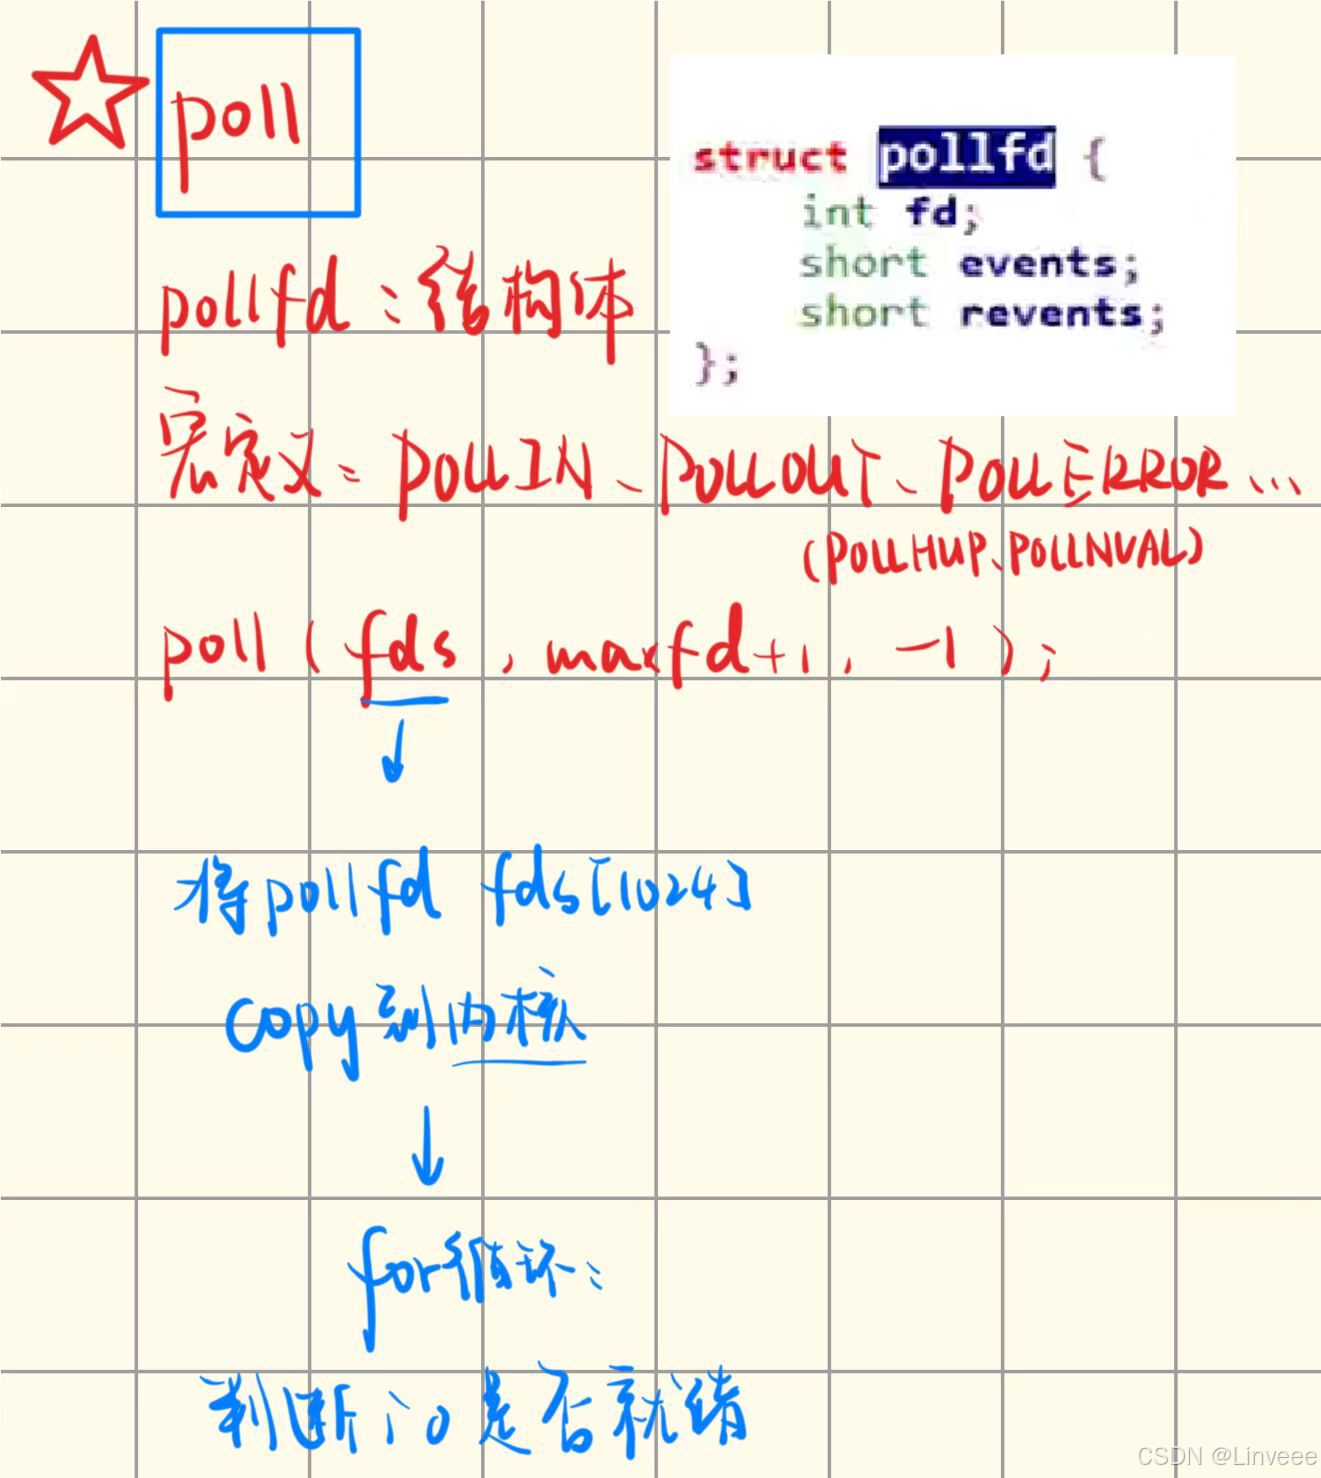 poll
struct pollfd {
int fd;
short events;
short revents;
};
pollfd:结构体
宏定义:POLLIN、POLLOUT、POLLERROR...
(POLLHUP、POLLNVAL)
poll(fds, maxfd+1, -1);
将pollfd fds[1024]
copy到内核
for循环:
判断io是否就绪
CSDN @Linveee